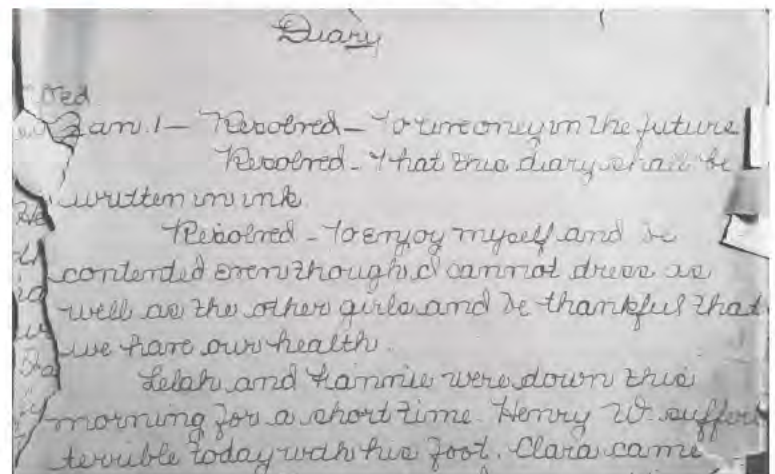 Diary
Jan. 1 — Resolved — To in the future
Resolved — That this diary shall be
written in ink.
Resolved — To enjoy myself and be
contented even though I cannot dress as
well as the other girls and be thankful that
we have our health.
Lelah and Fannie were down this
morning for a short time. Henry W. suffers
terrible today with his foot. Clara came